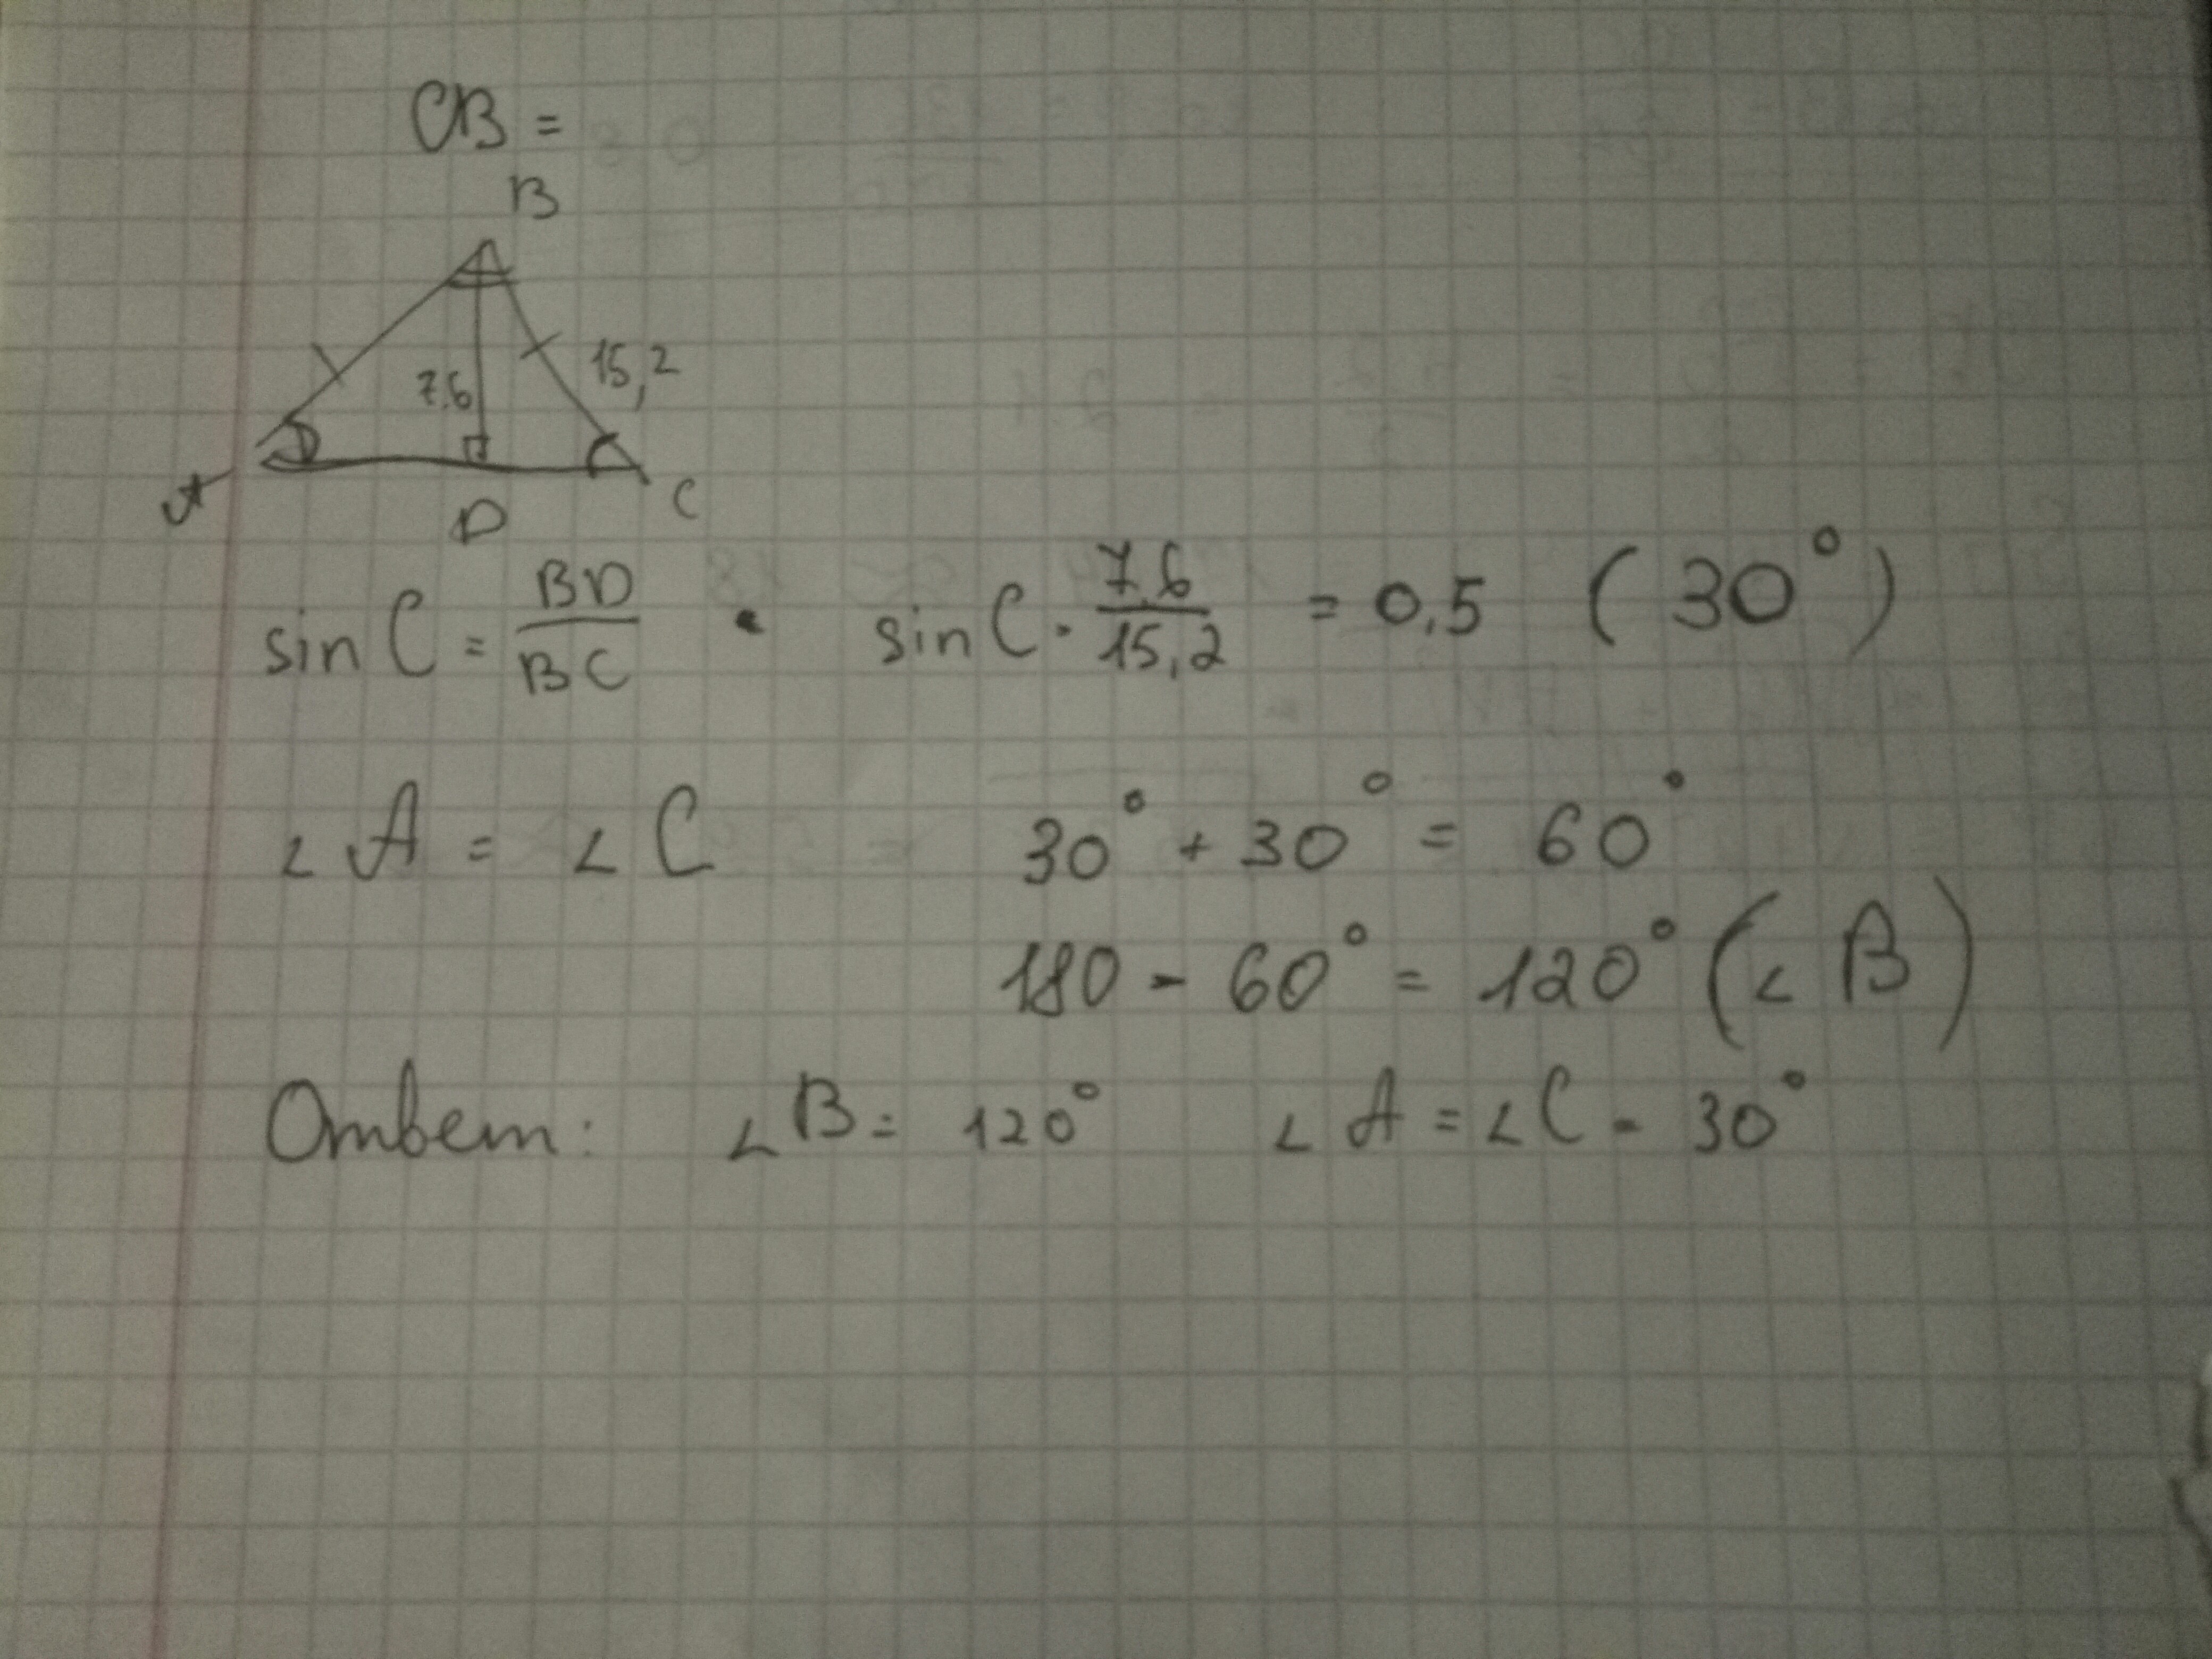 CB =
B
7.6 15,2
A D C
sin C = BD/BC sin C = 7.6/15,2 = 0.5 (30°)
∠A = ∠C 30° + 30° = 60°
180 - 60° = 120° (∠B)
Ответ: ∠B = 120° ∠A = ∠C = 30°